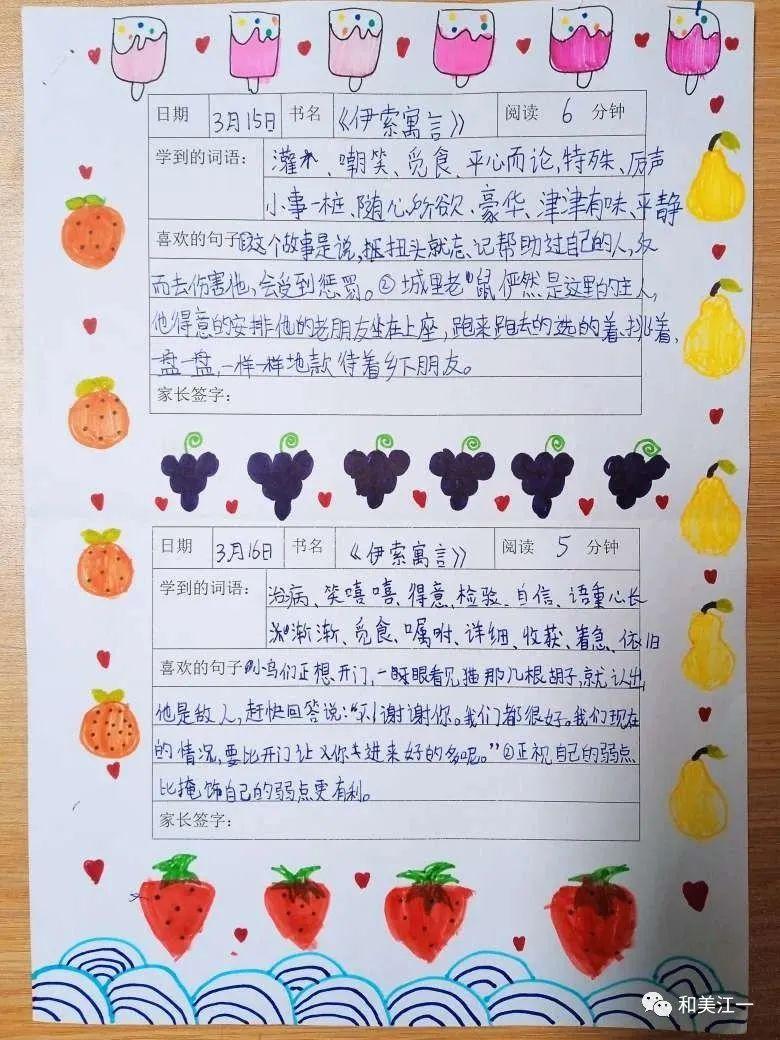 日期 3月15日 书名 《伊索寓言》 阅读 6 分钟
学到的词语： 灌木、嘲笑、觅食、平心而论,特殊、厉声
小事一桩、随心所欲、豪华、津津有味、平静
喜欢的句子①这个故事是说，扭头就忘记帮助过自己的人,反
而去伤害他，会受到惩罚。②城里老鼠俨然是这里的主人,
他得意的安排他的老朋友坐在上座，跑来跑去的选的着、挑着,
一盘一盘，一样一样地款待着乡下朋友。
家长签字：
日期 3月16日 书名 《伊索寓言》 阅读 5 分钟
学到的词语： 治病、笑嘻嘻、得意、检验、自信、语重心长
渐渐、觅食、嘱咐、详细、收获、着急、依旧
喜欢的句子①小鸟们正想开门,一眼看见猫那几根胡子,就认出
他是敌人，赶快回答说：“谢谢你。我们都很好。我们现在
的情况,要比开门让你走进来好的多呢。”②正视自己的弱点
比掩饰自己的弱点更有利。
家长签字：
和美江一